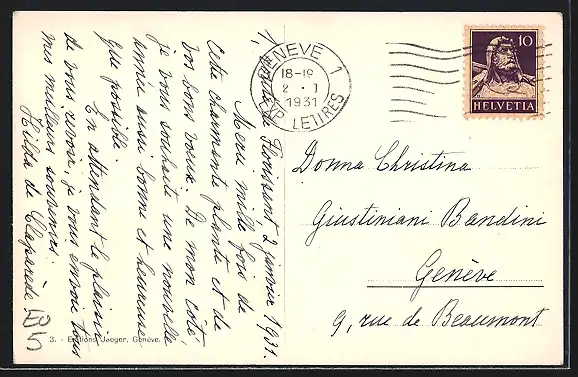 1, route de Florissant 2 janvier 1931.
Merci mille fois de
cette charmante plante et de
vos bons voeux. De mon côté
je vous souhaite une nouvelle
année aussi bonne et heureuse
que possible.
En attendant le plaisir
de vous revoir, je vous envoie tous
mes meilleurs souvenirs.
Hilda de Claparède
3. - Editions Jaeger, Genève.
GENÈVE 1
18-19
2 · I
1931
EXP. LETTRES
10
HELVETIA
Donna Christina
Giustiniani Bandini
Genève
9, rue de Beaumont